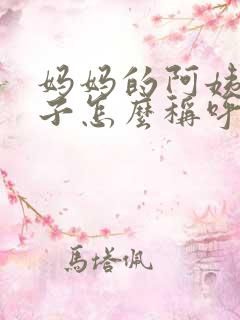 妈妈的阿姨
子怎麼稱呼
馬塔佩